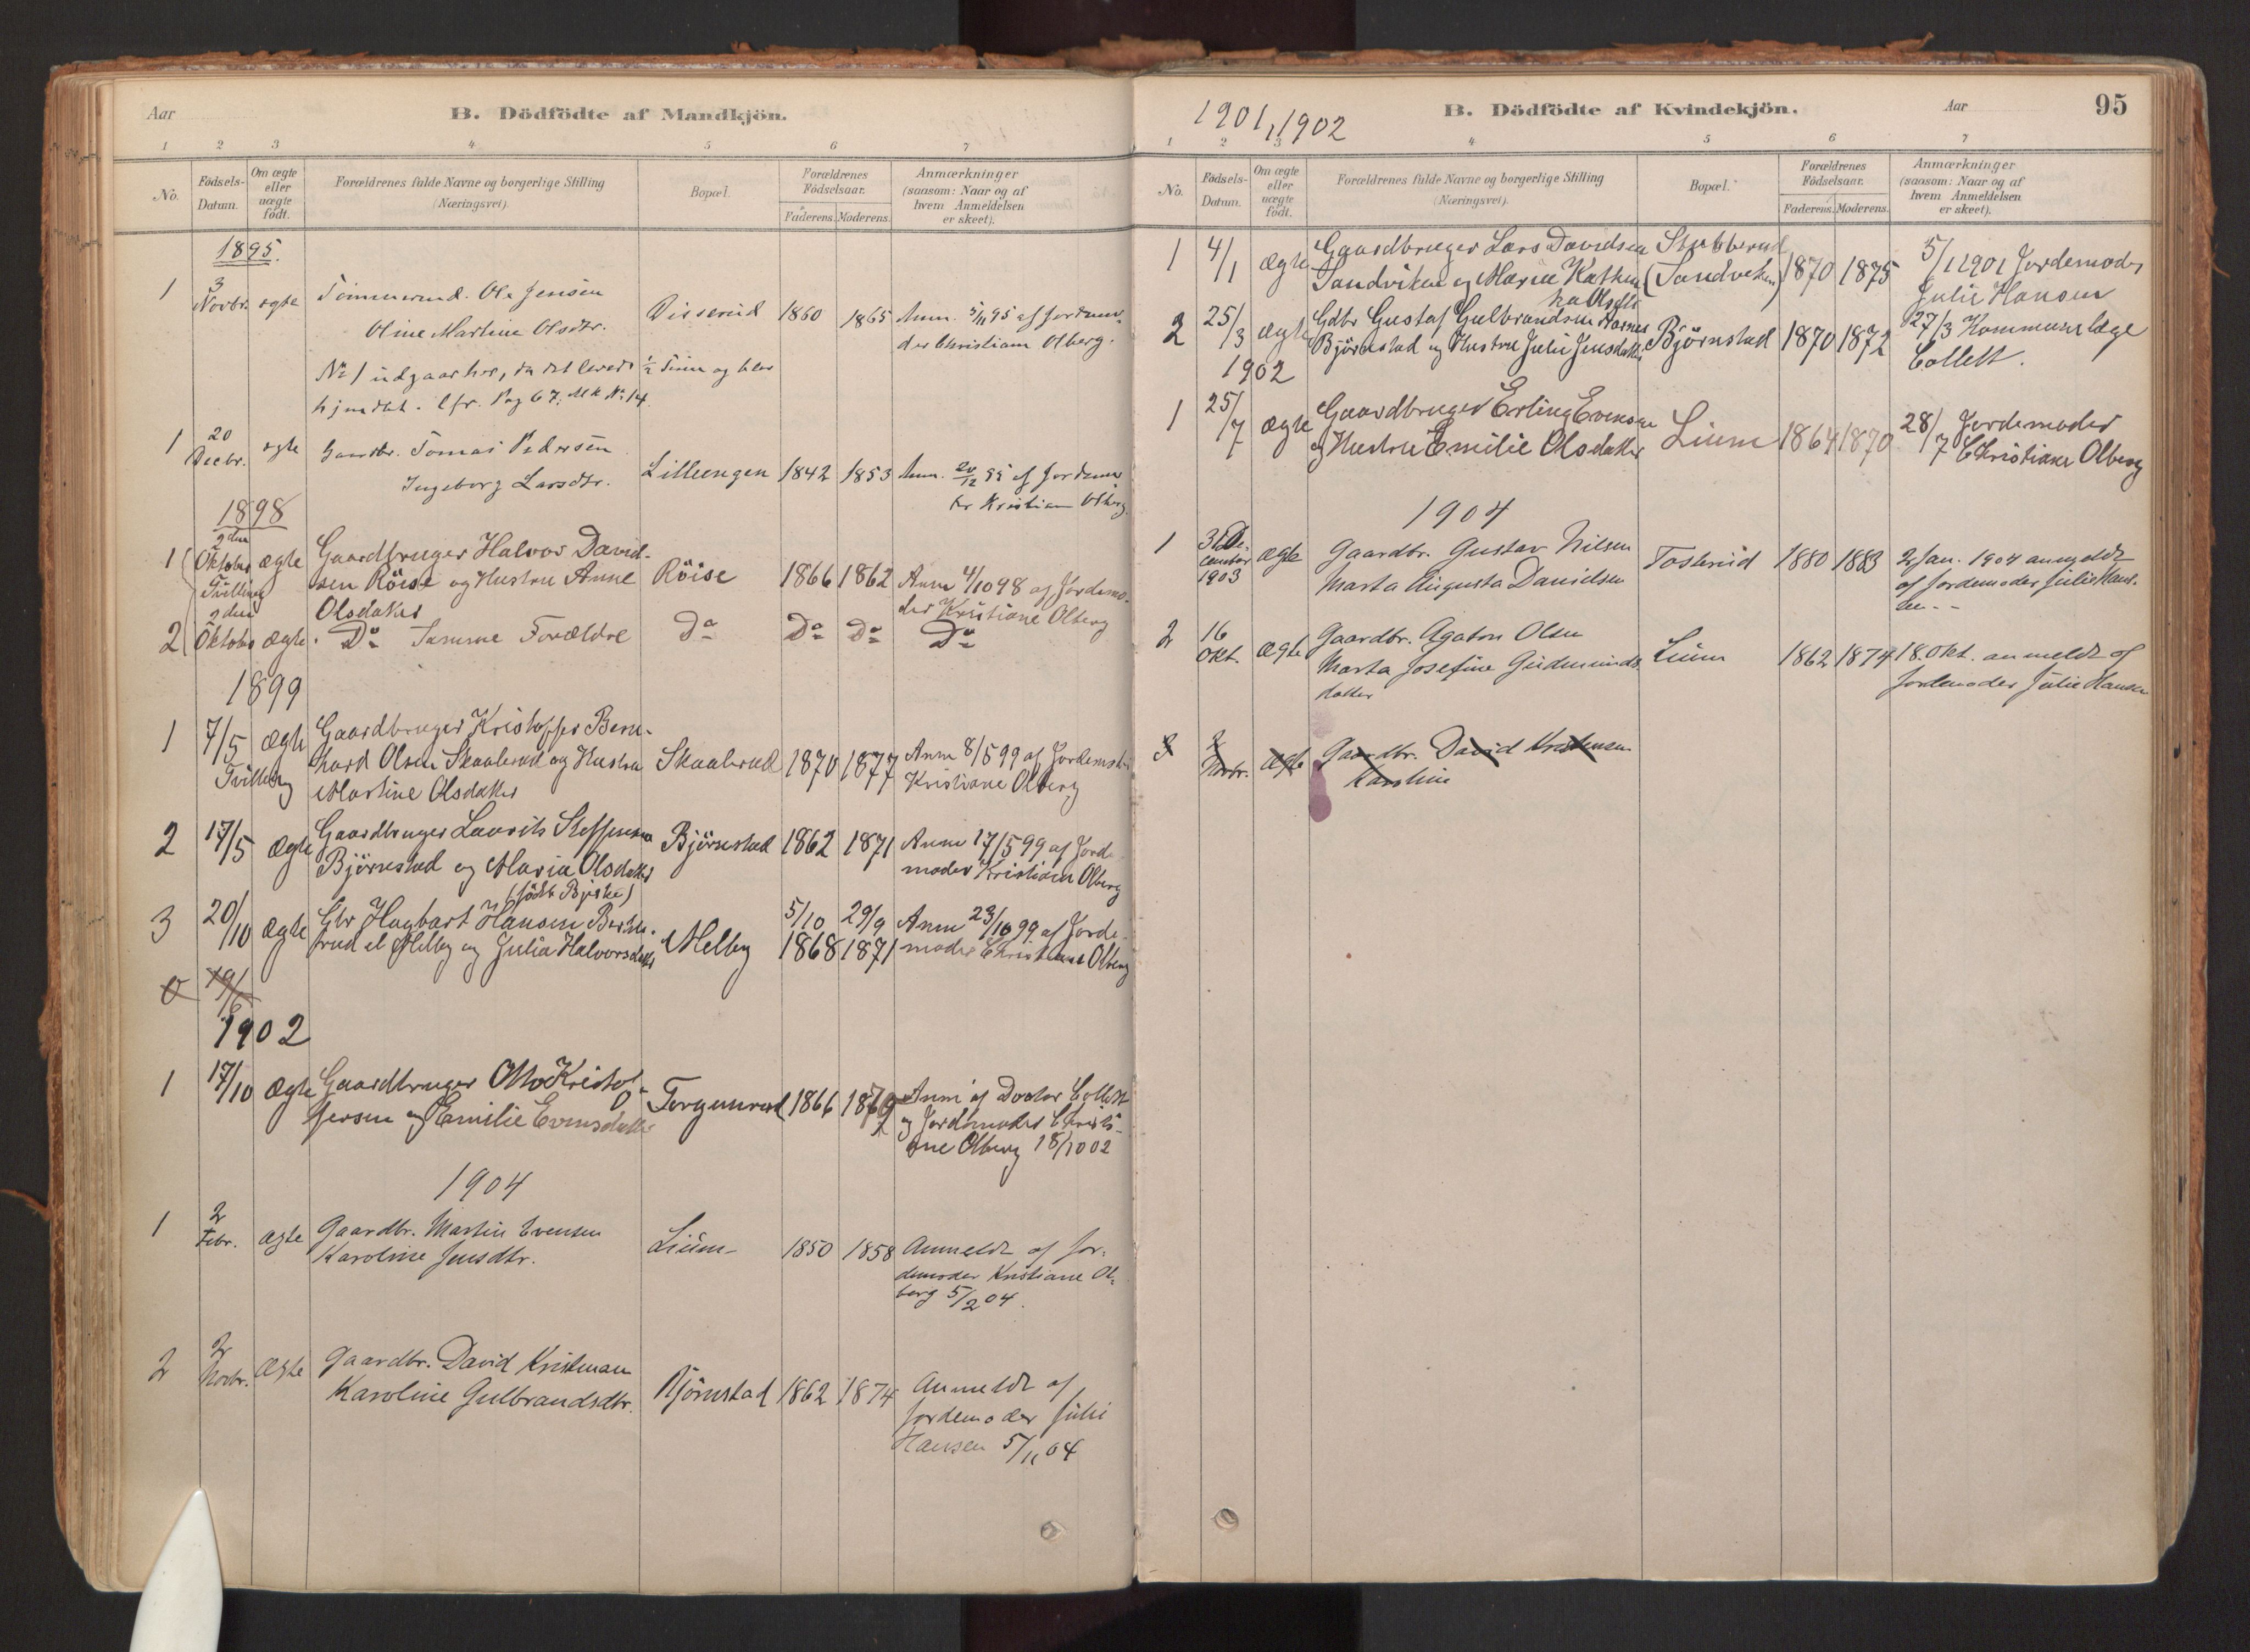 Aar
B. Dödfödte af Mandkjön.
1 2 3 4 5 6 7
No.
Födsels-
Datum.
Om ægte
eller
uægte
födt.
Forældrenes fulde Navne og borgerlige Stilling
(Næringsvei).
Bopæl.
Forældrenes
Födselsaar.
Faderens. Moderens.
Anmærkninger
(saasom: Naar og af
hvem Anmeldelsen
er skeet).
1895.
1 3 Novbr. ægte
Tømmermd. Ole Jensen
Oline Martine Olsdtr.
Disserud 1860 1865
Anm. 5/11 95 af Jordemo-
der Christiane Olberg.
No 1 udgaar her, da det levede ½ Time og blev
hjemdøbt. Cfr. Pag 67. MK No 14.
1 20 Decbr. ægte
Gaardbr. Tomas Pedersen
Ingeborg Larsdtr.
Lilleengen 1842 1853
Anm. 20/12 95 af Jordemo
der Kristiane Olberg.
1898
1 2den Oktober Tvilling ægte
Gaardbruger Halvor David-
sen Röise og Hustru Anne
Olsdatter
Röise 1866 1862
Anm 4/10 98 af Jordemo-
der Kristiane Olberg
2 2den Oktober ægte
Do Samme Forældre
Do Do Do Do
1899
1 7/5 Tvilling ægte
Gaardbruger Kristoffer Bern-
hard Olsen Skaalerud og Hustru
Martine Olsdatter
Skaalerud 1870 1877
Anm 8/5 99 af Jordemoder
Kristiane Olberg
2 17/5 ægte
Gaardbruger Laurits Steffensen
Björnestad og Maria Olsdatter
Björnestad 1862 1871
Anm 17/5 99 af Jorde-
moder Kristiane Olberg
(födt Bjerke)
3 20/10 ægte
Gbr Hagbart Hansen
Melby og Julia Halvorsdatter
Melby 5/10 1868 29/9 1871
Anm 23/10 99 af Jorde-
moder Christiane Olberg
0 19/6
1902
1 17/10 ægte
Gaardbruger Otto Kristof-
fersen og Emilie Evensdatter
Torgunrud 1866 1869
Anm af Doctor Collett
og Jordemoder Christi-
ane Olberg 18/10 02
1904
1 2 Febr. ægte
Gaardbr. Martin Evensen
Karoline Jensdtr.
Lium 1850 1858
Anmeldt af Jor-
demoder Kristiane Ol-
berg 5/2 04.
2 2 Novbr. ægte
Gaardbr. David Kristensen
Karoline Gulbrandsdtr.
Björnstad 1862 1874
Anmeldt af
Jordemoder Julie
Hansen 5/11 04
1901, 1902
B. Dödfödte af Kvindekjön.
Aar
95
1 2 3 4 5 6 7
No.
Födsels-
Datum.
Om ægte
eller
uægte
födt.
Forældrenes fulde Navne og borgerlige Stilling
(Næringsvei).
Bopæl.
Forældrenes
Födselsaar.
Faderens. Moderens.
Anmærkninger
(saasom: Naar og af
hvem Anmeldelsen
er skeet).
1 4/1 ægte
Gaardbruger Lars Davidsen
Sandviken og Marie Kathin
ka Olsdtr
Stubberud
(Sandviken) 1870 1875
5/1 1901 Jordemoder
Julie Hansen
2 25/3 ægte
Gdbr Gustaf Gulbrandsen
Björnstad og Hustru Julie Jensdatter
Björnstad 1870 1872
27/3 Kommunelæge
Collett.
1902
1 25/7 ægte
Gaardbruger Erling Evensen
og Hustru Emilie Olsdatter
Lium 1864 1870
28/7 Jordemoder
Christiane Olberg
1904
1 31 De-
cember
1903 ægte
Gaardbr. Gustav Nilsen
Marta Augusta Danielsen
Tosterud 1880 1883
2 Jan. 1904 anmeldt
af Jordemoder Julie Han-
sen
2 16 Okt. ægte
Gaardbr. Agaton Olsen
Marta Josefine Gudmunds
datter
Lium 1862 1874
18. Okt. anmeldt af
Jordemoder Julie Hansen
3 2 Novbr. ægte
Gaardbr. David Kristensen
Karoline